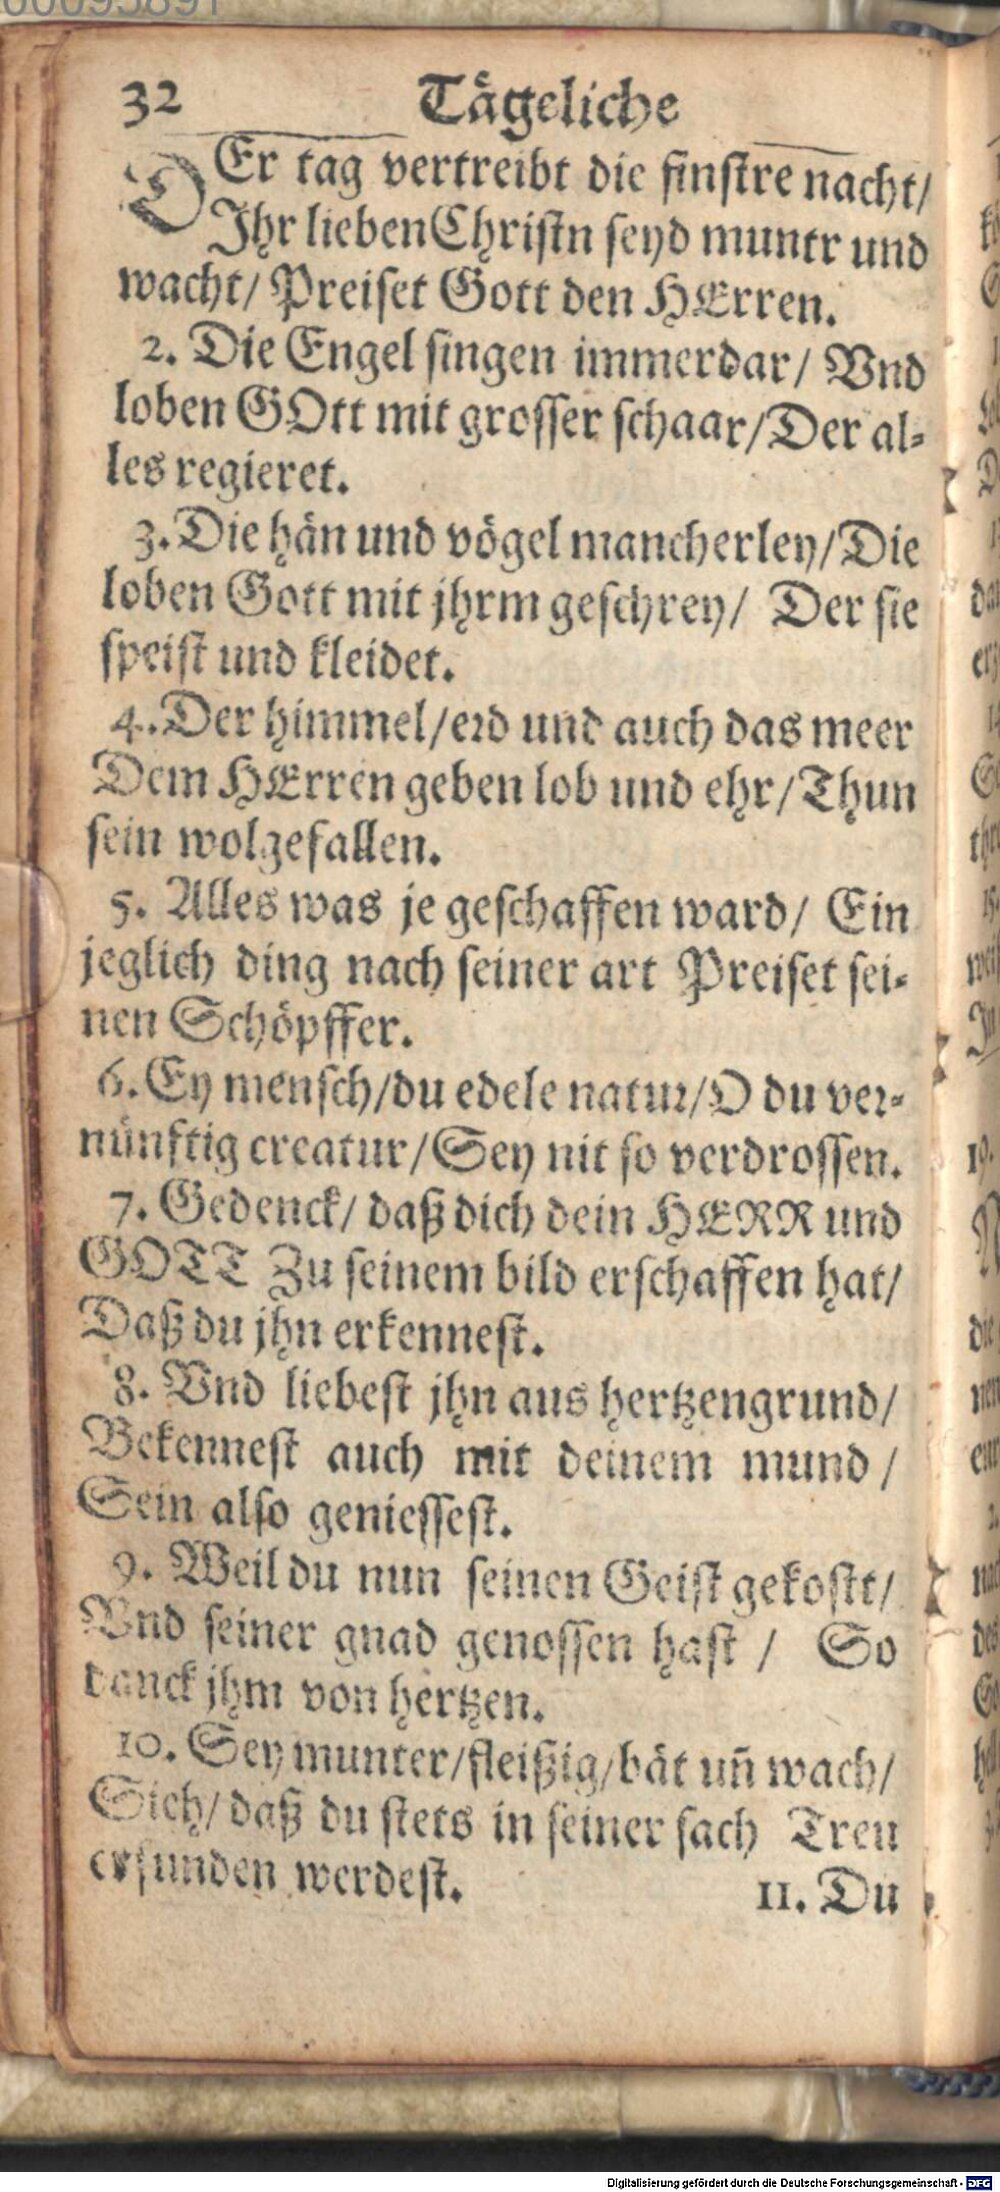 32 Tägeliche
DEr tag vertreibt die finstre nacht/
Ihr lieben Christn seyd muntr und
wacht/ Preiset Gott den HErren.
2. Die Engel singen immerdar/ Vnd
loben GOtt mit grosser schaar/Der al-
les regieret.
3. Die hän und vögel mancherley/Die
loben Gott mit jhrm geschrey/ Der sie
speist und kleidet.
4. Der himmel/erd und auch das meer
Dem HErren geben lob und ehr/Thun
sein wolgefallen.
5. Alles was je geschaffen ward/ Ein
jeglich ding nach seiner art Preiset sei-
nen Schöpffer.
6. Ey mensch/du edele natur/O du ver-
nünftig creatur/Sey nit so verdrossen.
7. Gedenck/ daß dich dein HERR und
GOTT Zu seinem bild erschaffen hat/
Daß du jhn erkennest.
8. Vnd liebest jhn aus hertzengrund/
Bekennest auch mit deinem mund/
Sein also geniessest.
9. Weil du nun seinen Geist gekostt/
Vnd seiner gnad genossen hast/ So
danck jhm von hertzen.
10. Sey munter/fleißig/bät uñ wach/
Sich/ daß du stets in seiner sach Treu
erfunden werdest.
11. Du
Digitalisierung gefördert durch die Deutsche Forschungsgemeinschaft - DFG